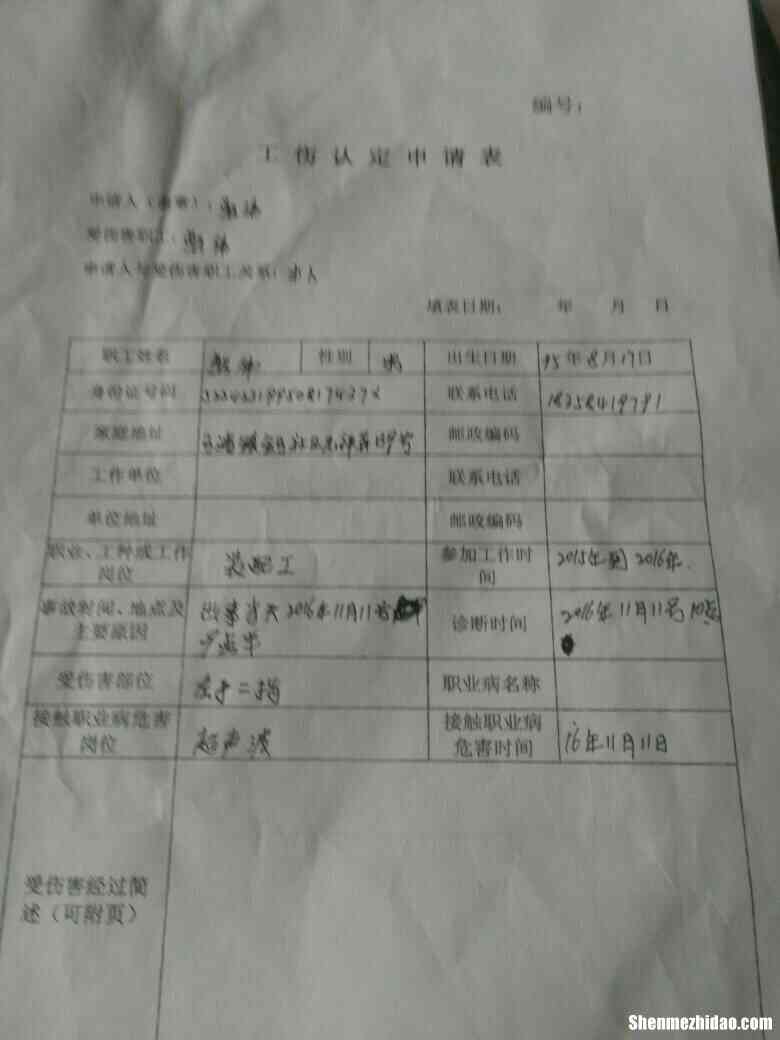 编号：
工伤认定申请表
申请人（盖章）：
受伤害职工：
申请人与受伤害职工关系：本人
填表日期： 年 月 日
职工姓名 性别 男 出生日期 95年8月17日
身份证号码 联系电话 18258419791
家庭地址 邮政编码
工作单位 联系电话
单位地址 邮政编码
职业、工种或工作岗位 装配工 参加工作时间 2015年到2016年.
事故时间、地点及主要原因 故事当天2016年11月11号 9点半 诊断时间 2016年11月11号10点
受伤害部位 左手二指 职业病名称
接触职业病危害岗位 超声波 接触职业病危害时间 16年11月11日
受伤害经过简述（可附页）
Shenmezhidao.com